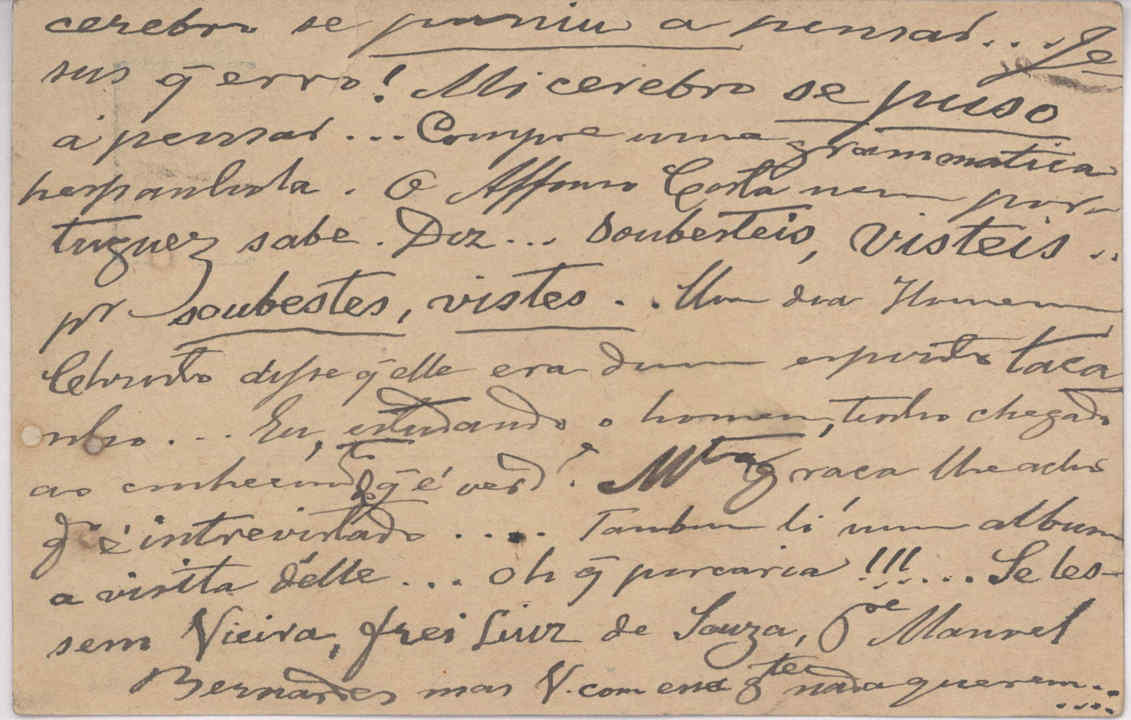 cerebro se puniu a pensar... Je-
sus q̃ erro! Mi cerebro se puso
á pensar... Compre uma grammatica
hespanhola. O Affonso Costa nem por-
tuguez sabe. Diz... soubesteis, visteis..
pr soubestes, vistes.. Um dia Homem
Christo disse q̃ elle era dum espirito taca
nho... Eu, estudando o homem, tenho chegado
ao conhecimto q̃ é verde. Mta graça lhe acho
qdo é intrevistado..... Tambem li num album
a visita d'elle... oh q̃ porcaria!!!.... Se les-
sem Vieira, frei Luiz de Souza, Pe Manuel
Bernardes mas V. com essa gte nada querem....